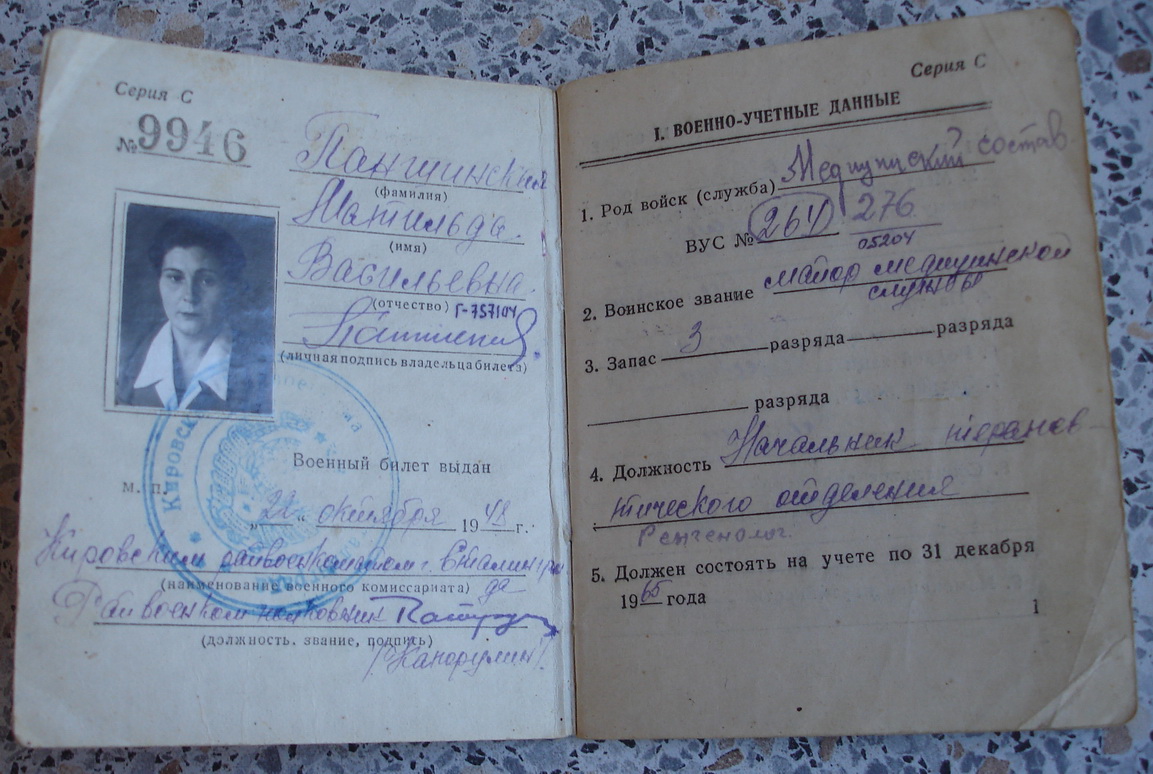 Серия С
№ 9946
Паншинская
(фамилия)
Матильда
(имя)
Васильевна
(отчество) Г-757104
(личная подпись владельца билета)
Военный билет выдан
м. п.
„22“ октября 1948 г.
Кировским райвоенкоматом г. Сталингра
(наименование военного комиссариата) да
Райвоенком полковник
(должность, звание, подпись)
Кировск
Серия С
I. ВОЕННО-УЧЕТНЫЕ ДАННЫЕ
1. Род войск (служба) Медицинский состав
ВУС № 264 276
05204
2. Воинское звание майор медицинской
службы
3. Запас 3 разряда разряда
разряда
4. Должность Начальник терапев
тического отделения
Ренгенолог.
5. Должен состоять на учете по 31 декабря
1965 года
1